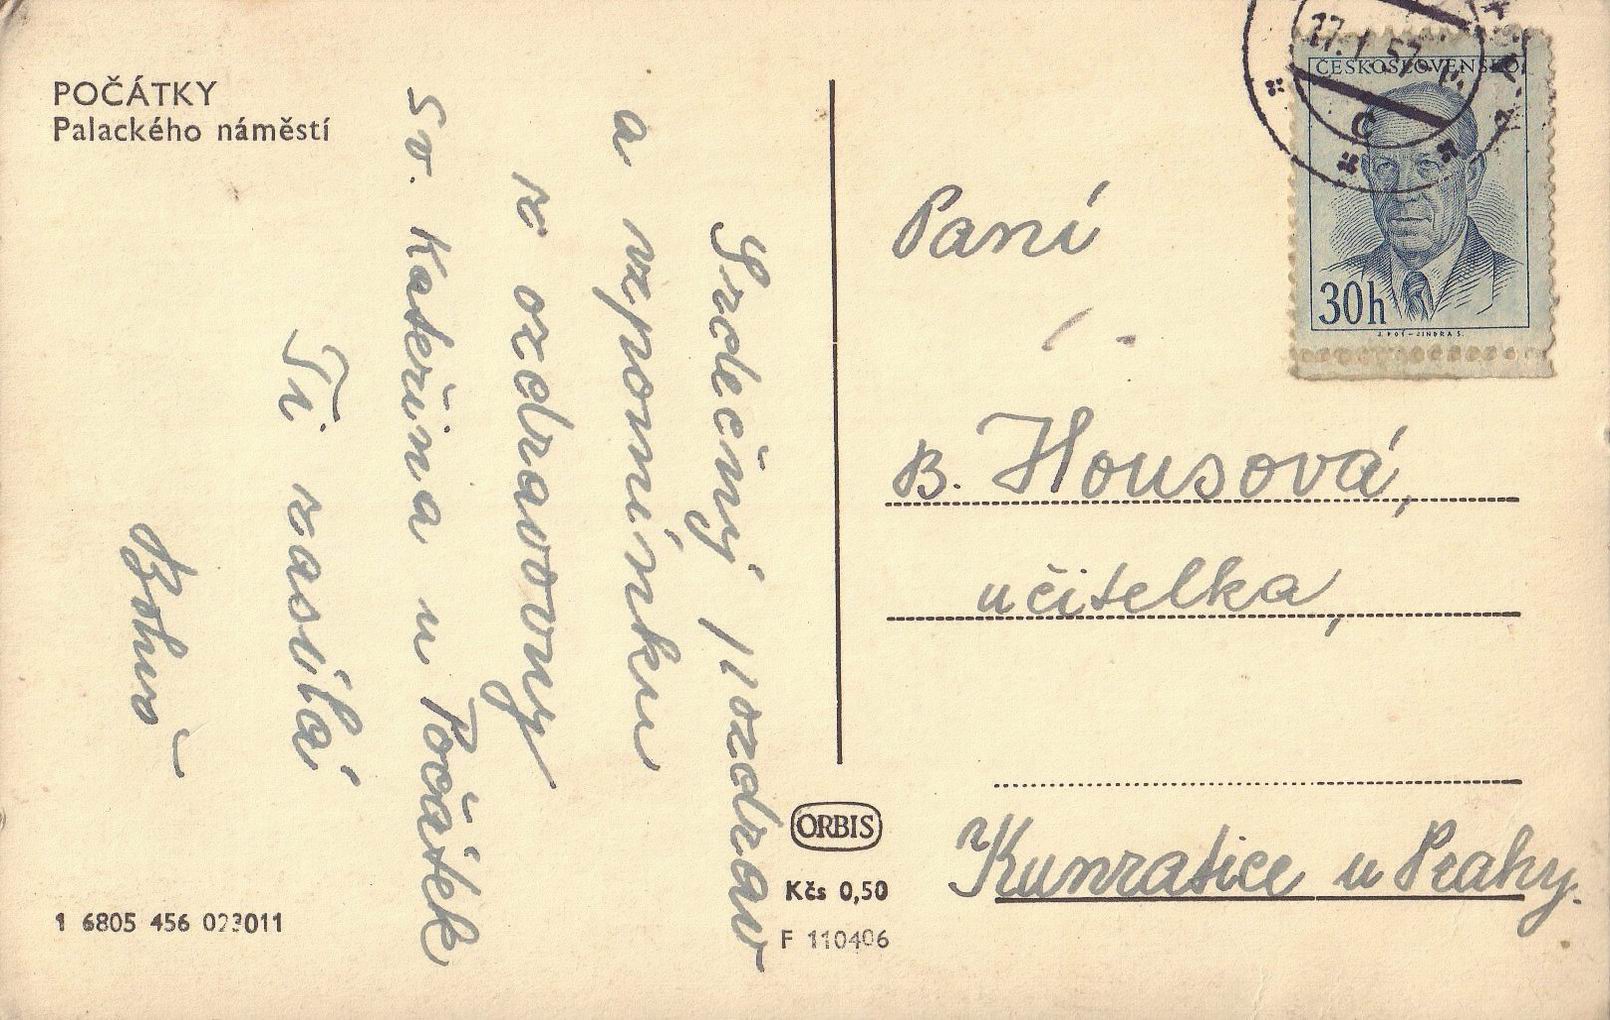 POČÁTKY
Palackého náměstí
Srdečný pozdrav
a vzpomínku
z ozdravovny
Sv. Kateřina u Počátek
Ti zasílá
1 6805 456 023011
ORBIS
Kčs 0,50
F 110406
ČESKOSLOVENSKO
30h
Paní
B. Housová,
učitelka,
Kunratice u Prahy.